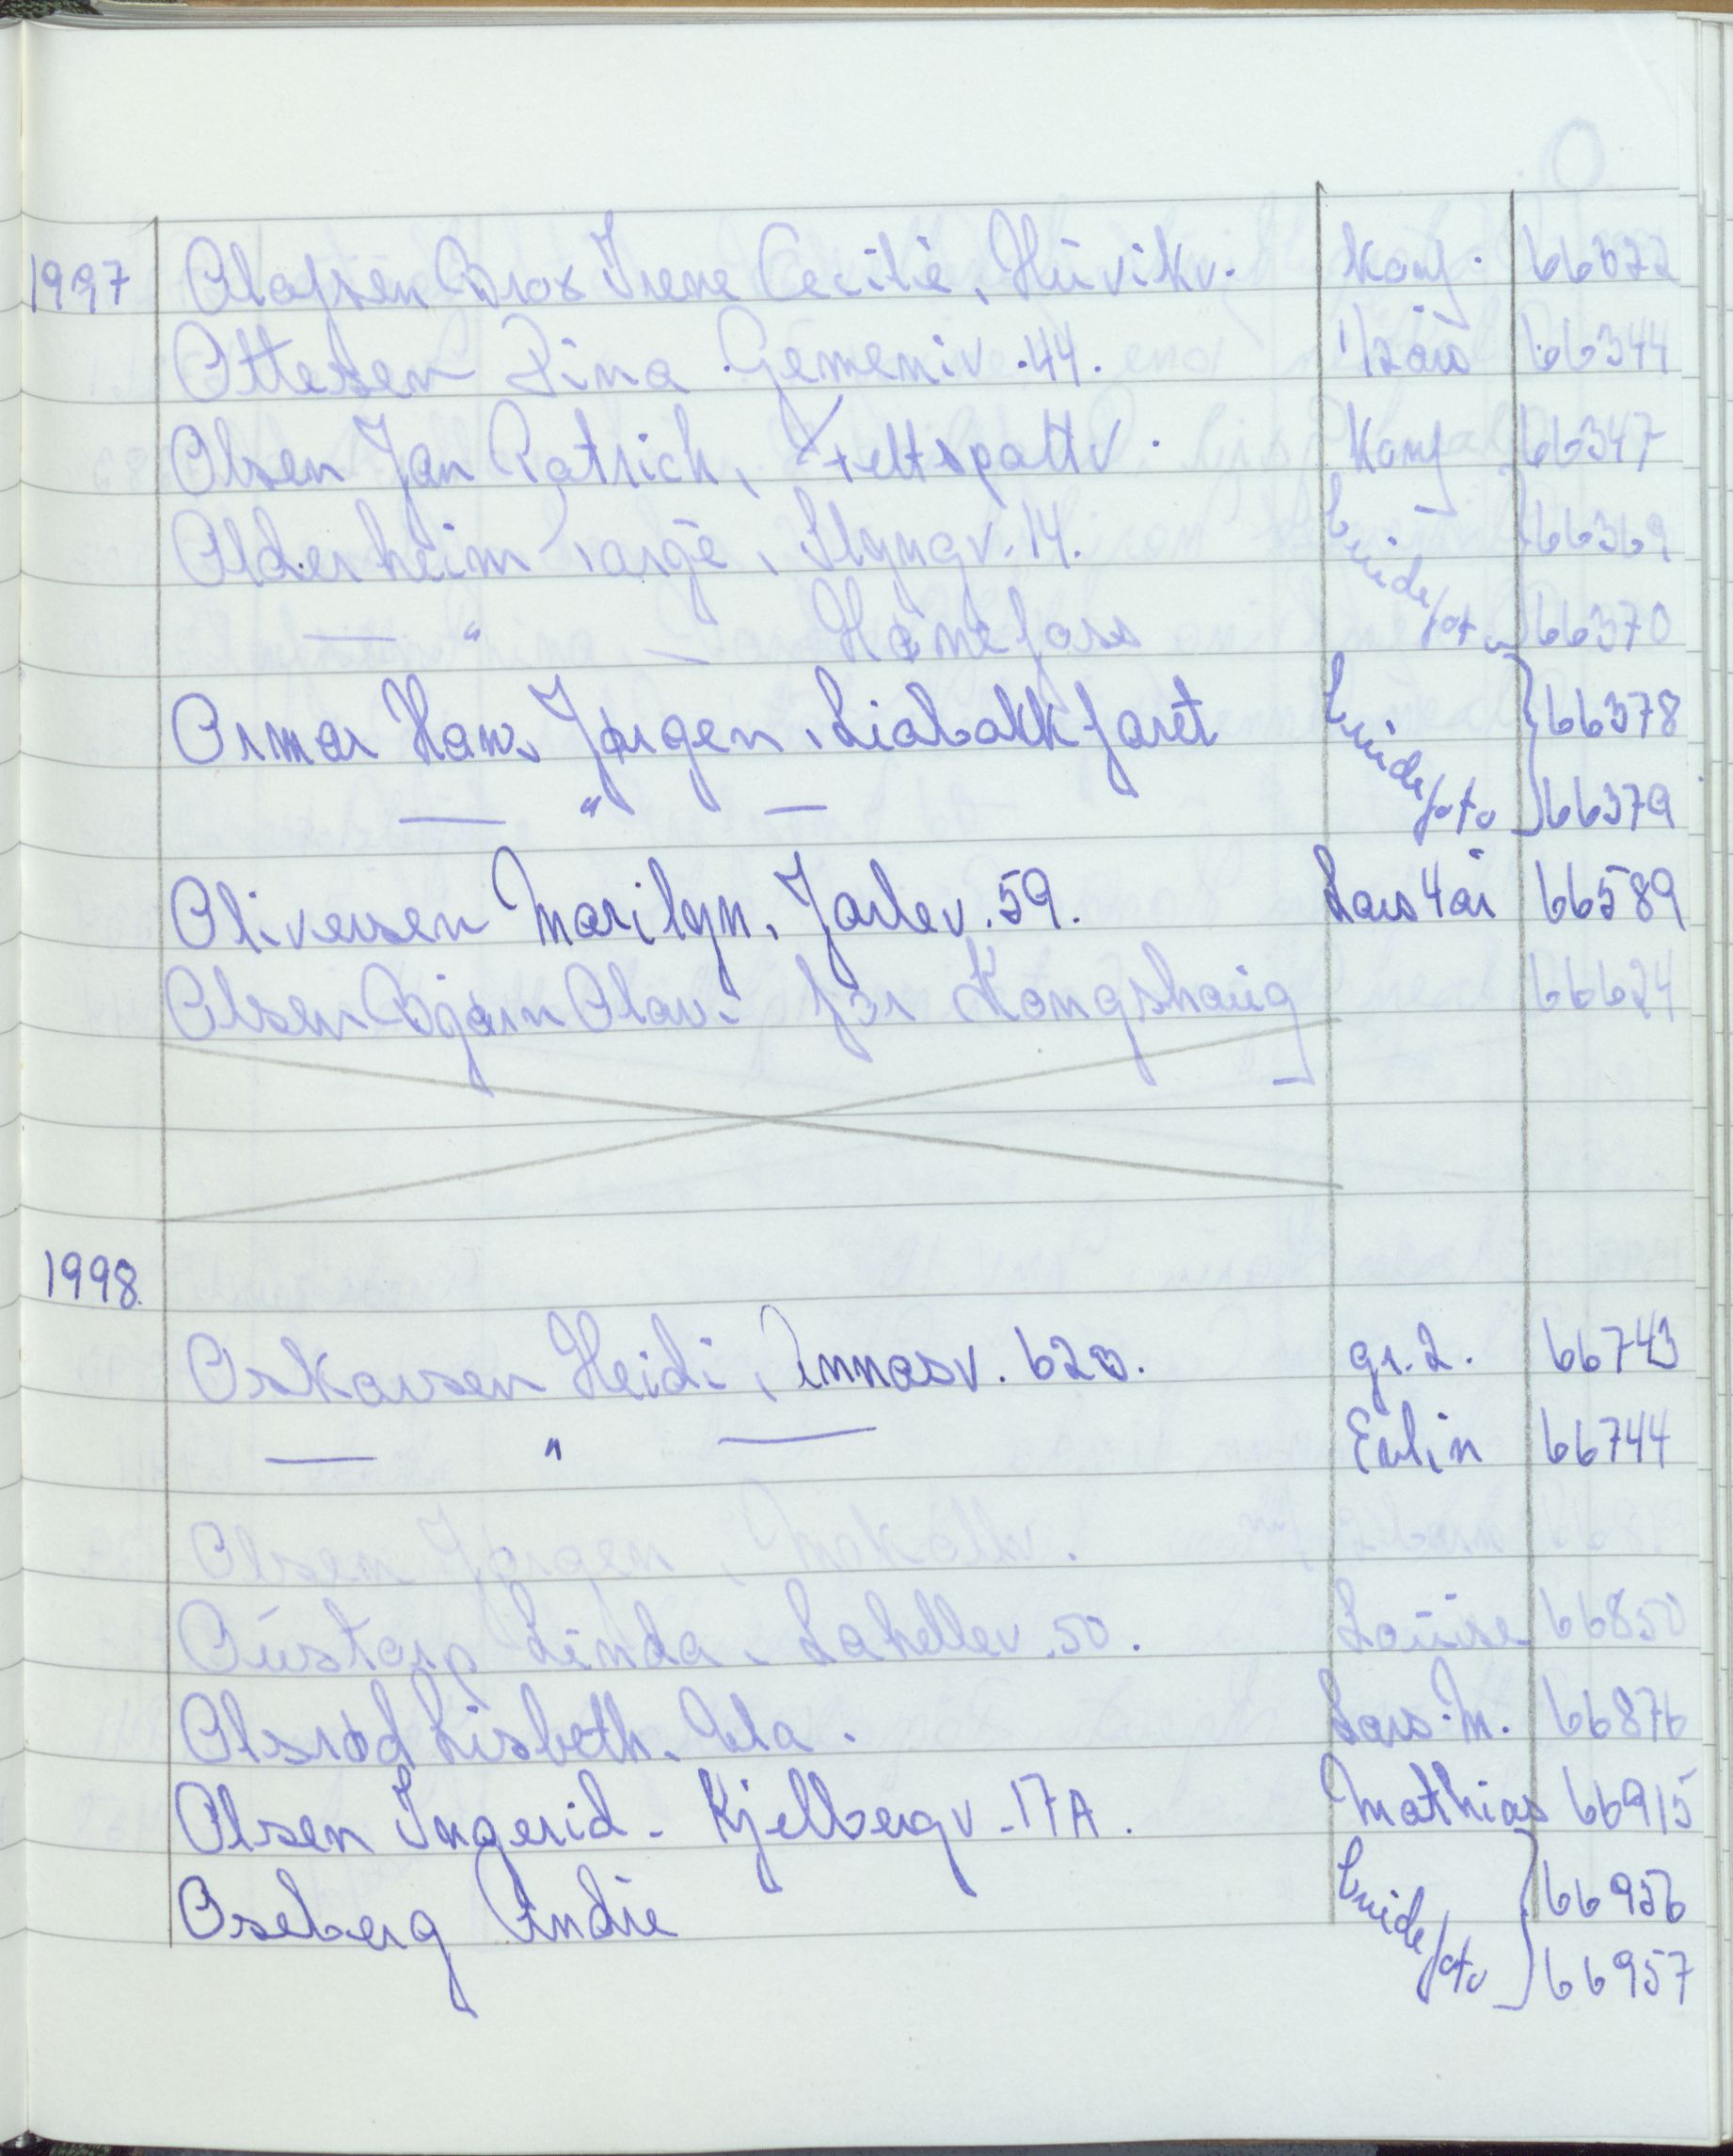 1997 Olafsen Brox Irene Cecilie, Huvikv. Konf. 66072
Ottesen Lina Gemeniv. 44. 1/2 år 66344
Olsen Jan Patrich, Feltspattv. Konf 66347
Olderheim Targe, Slyngv. 14. brudefoto 66369
— " — Hønefoss 66370
Ormar Hans Jørgen, Liabakkfaret brudefoto 66378
— " — 66379
Oliversen Marilyn, Jarlev. 59. Lars 4 år 66589
Olsen Bjørn Olav. før Kongshaug 66624
1998.
Oskarsen Heidi, Annasv. 620. gr. 2. 66743
— " — Erlin 66744
Olsen Jørgen,
Oustorp Linda. Lahellev. 50. Louise 66850
Olsrød Lisbeth. Ula. Lars. M. 66876
Olsen Ingerid - Kjellbergv - 17A. Mathias 66915
Oseberg Andre brudefoto 66956
66957